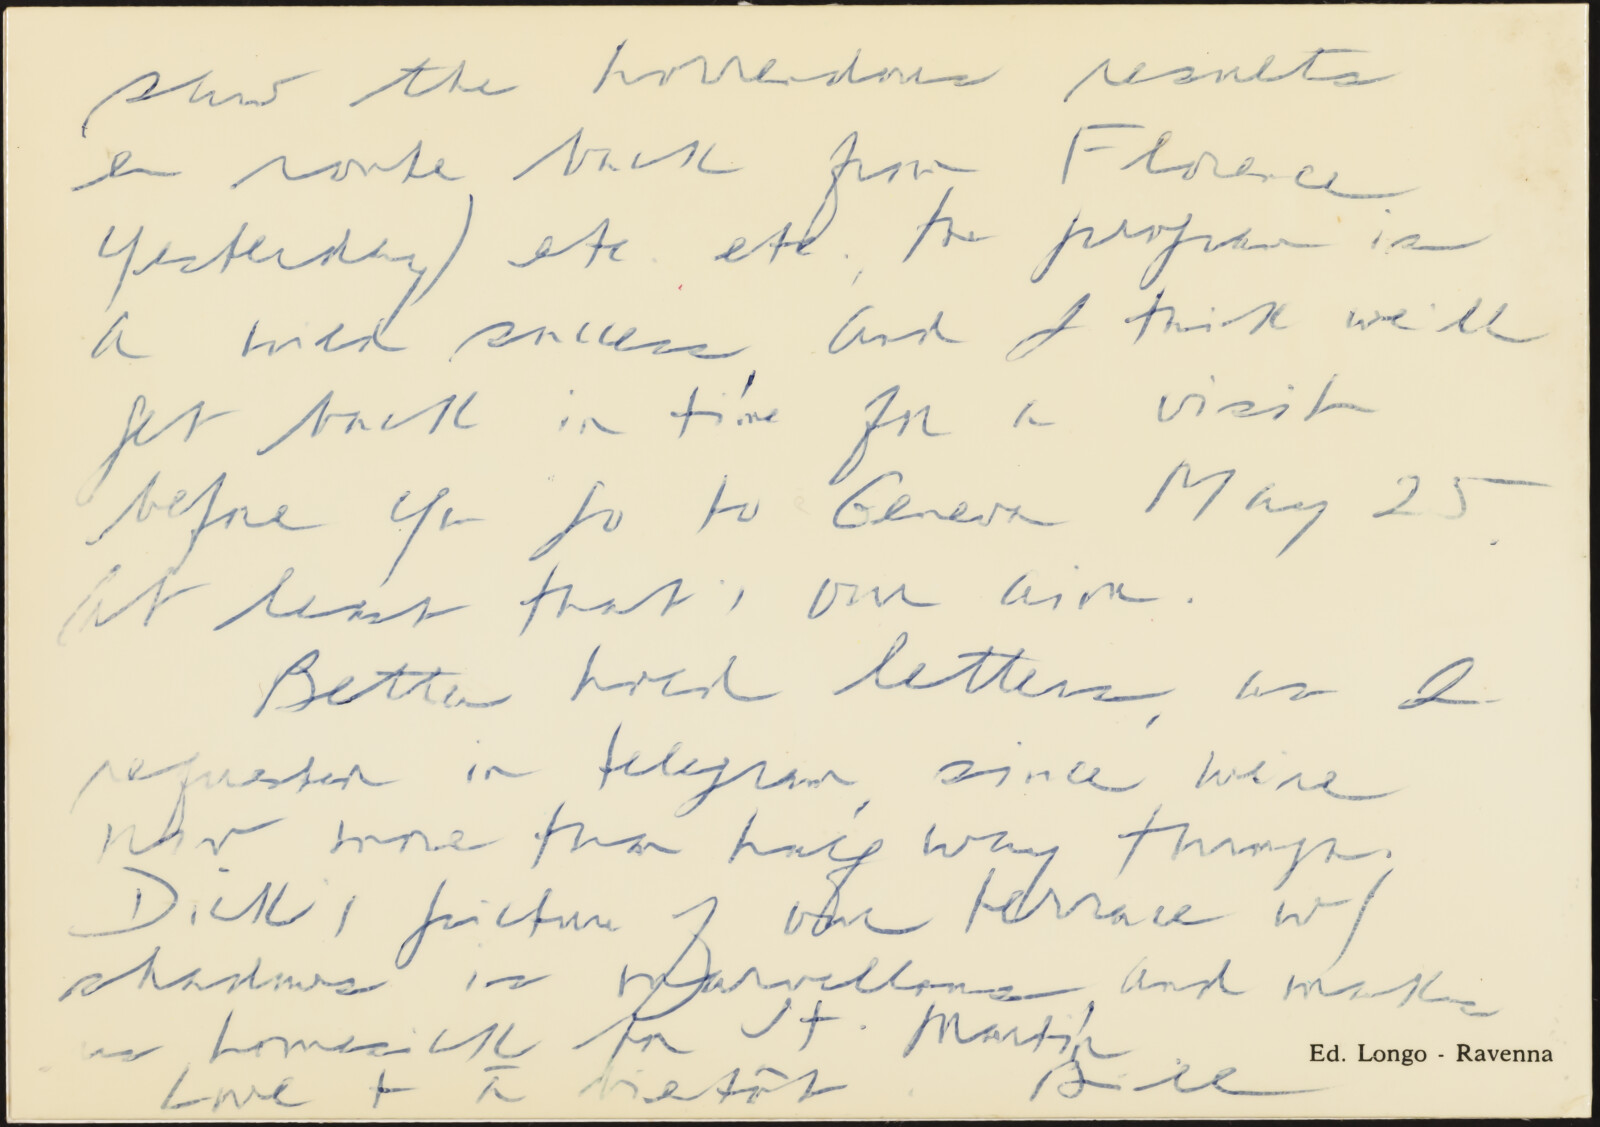 show the horrendous results
en route back from Florence
yesterday) etc. etc., the program is
a wild success, and I think we'll
get back in time for a visit
before you go to Geneva May 25.
At least that's our aim.
Better hold letters, as I
requested in telegram, since we're
now more than half way through.
Dick's picture of our terrace w/
shadows is marvellous, and makes
us homesick for St. Martin
Love + à bientôt. Bill
Ed. Longo - Ravenna